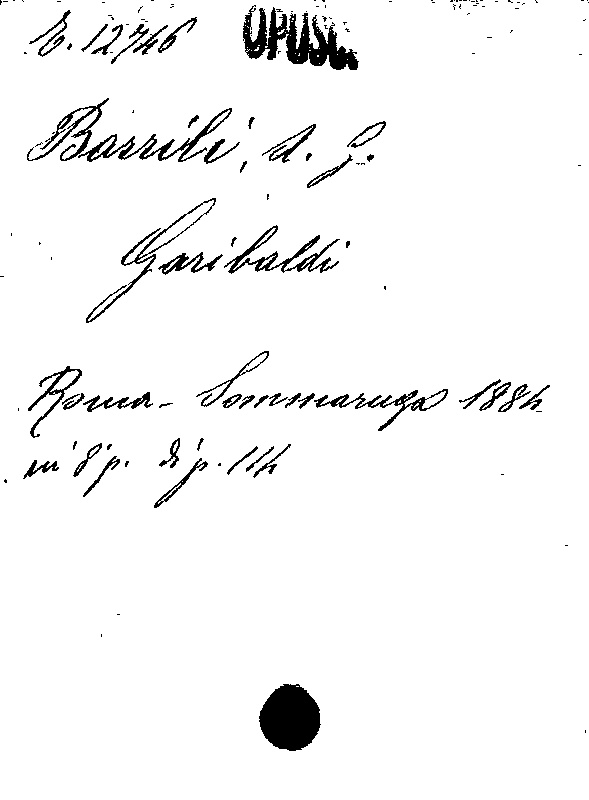 E. 12746 OPUSC.
Barrili, A. G.
Garibaldi
Roma - Sommaruga 1884
in 8° p. di p. 114